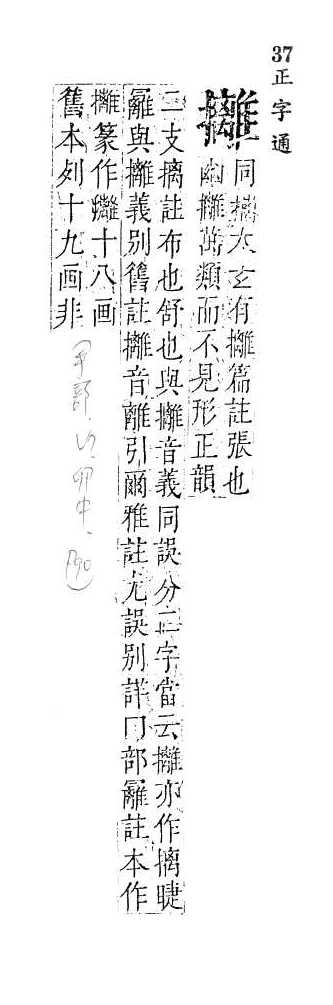 37正字通
攡
同摛太玄有攡篇註張也
幽攡萬類而不見形正韻
二支摛註布也舒也與攡音義同誤分二字當云攡亦作摛睫
與攡義別舊註攡音離引爾雅註尤誤別詳冂部註本作
攡篆作十八画
舊本列十九画非